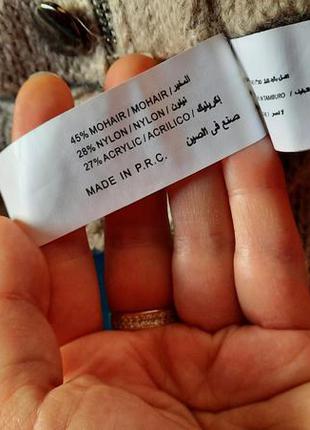 45% MOHAIR / MOHAIR / المخير
28% NYLON / NYLON / نيلون
27% ACRYLIC / ACRILICO / اكريليك
MADE IN P.R.C. صنع في الصين
TAMBURO